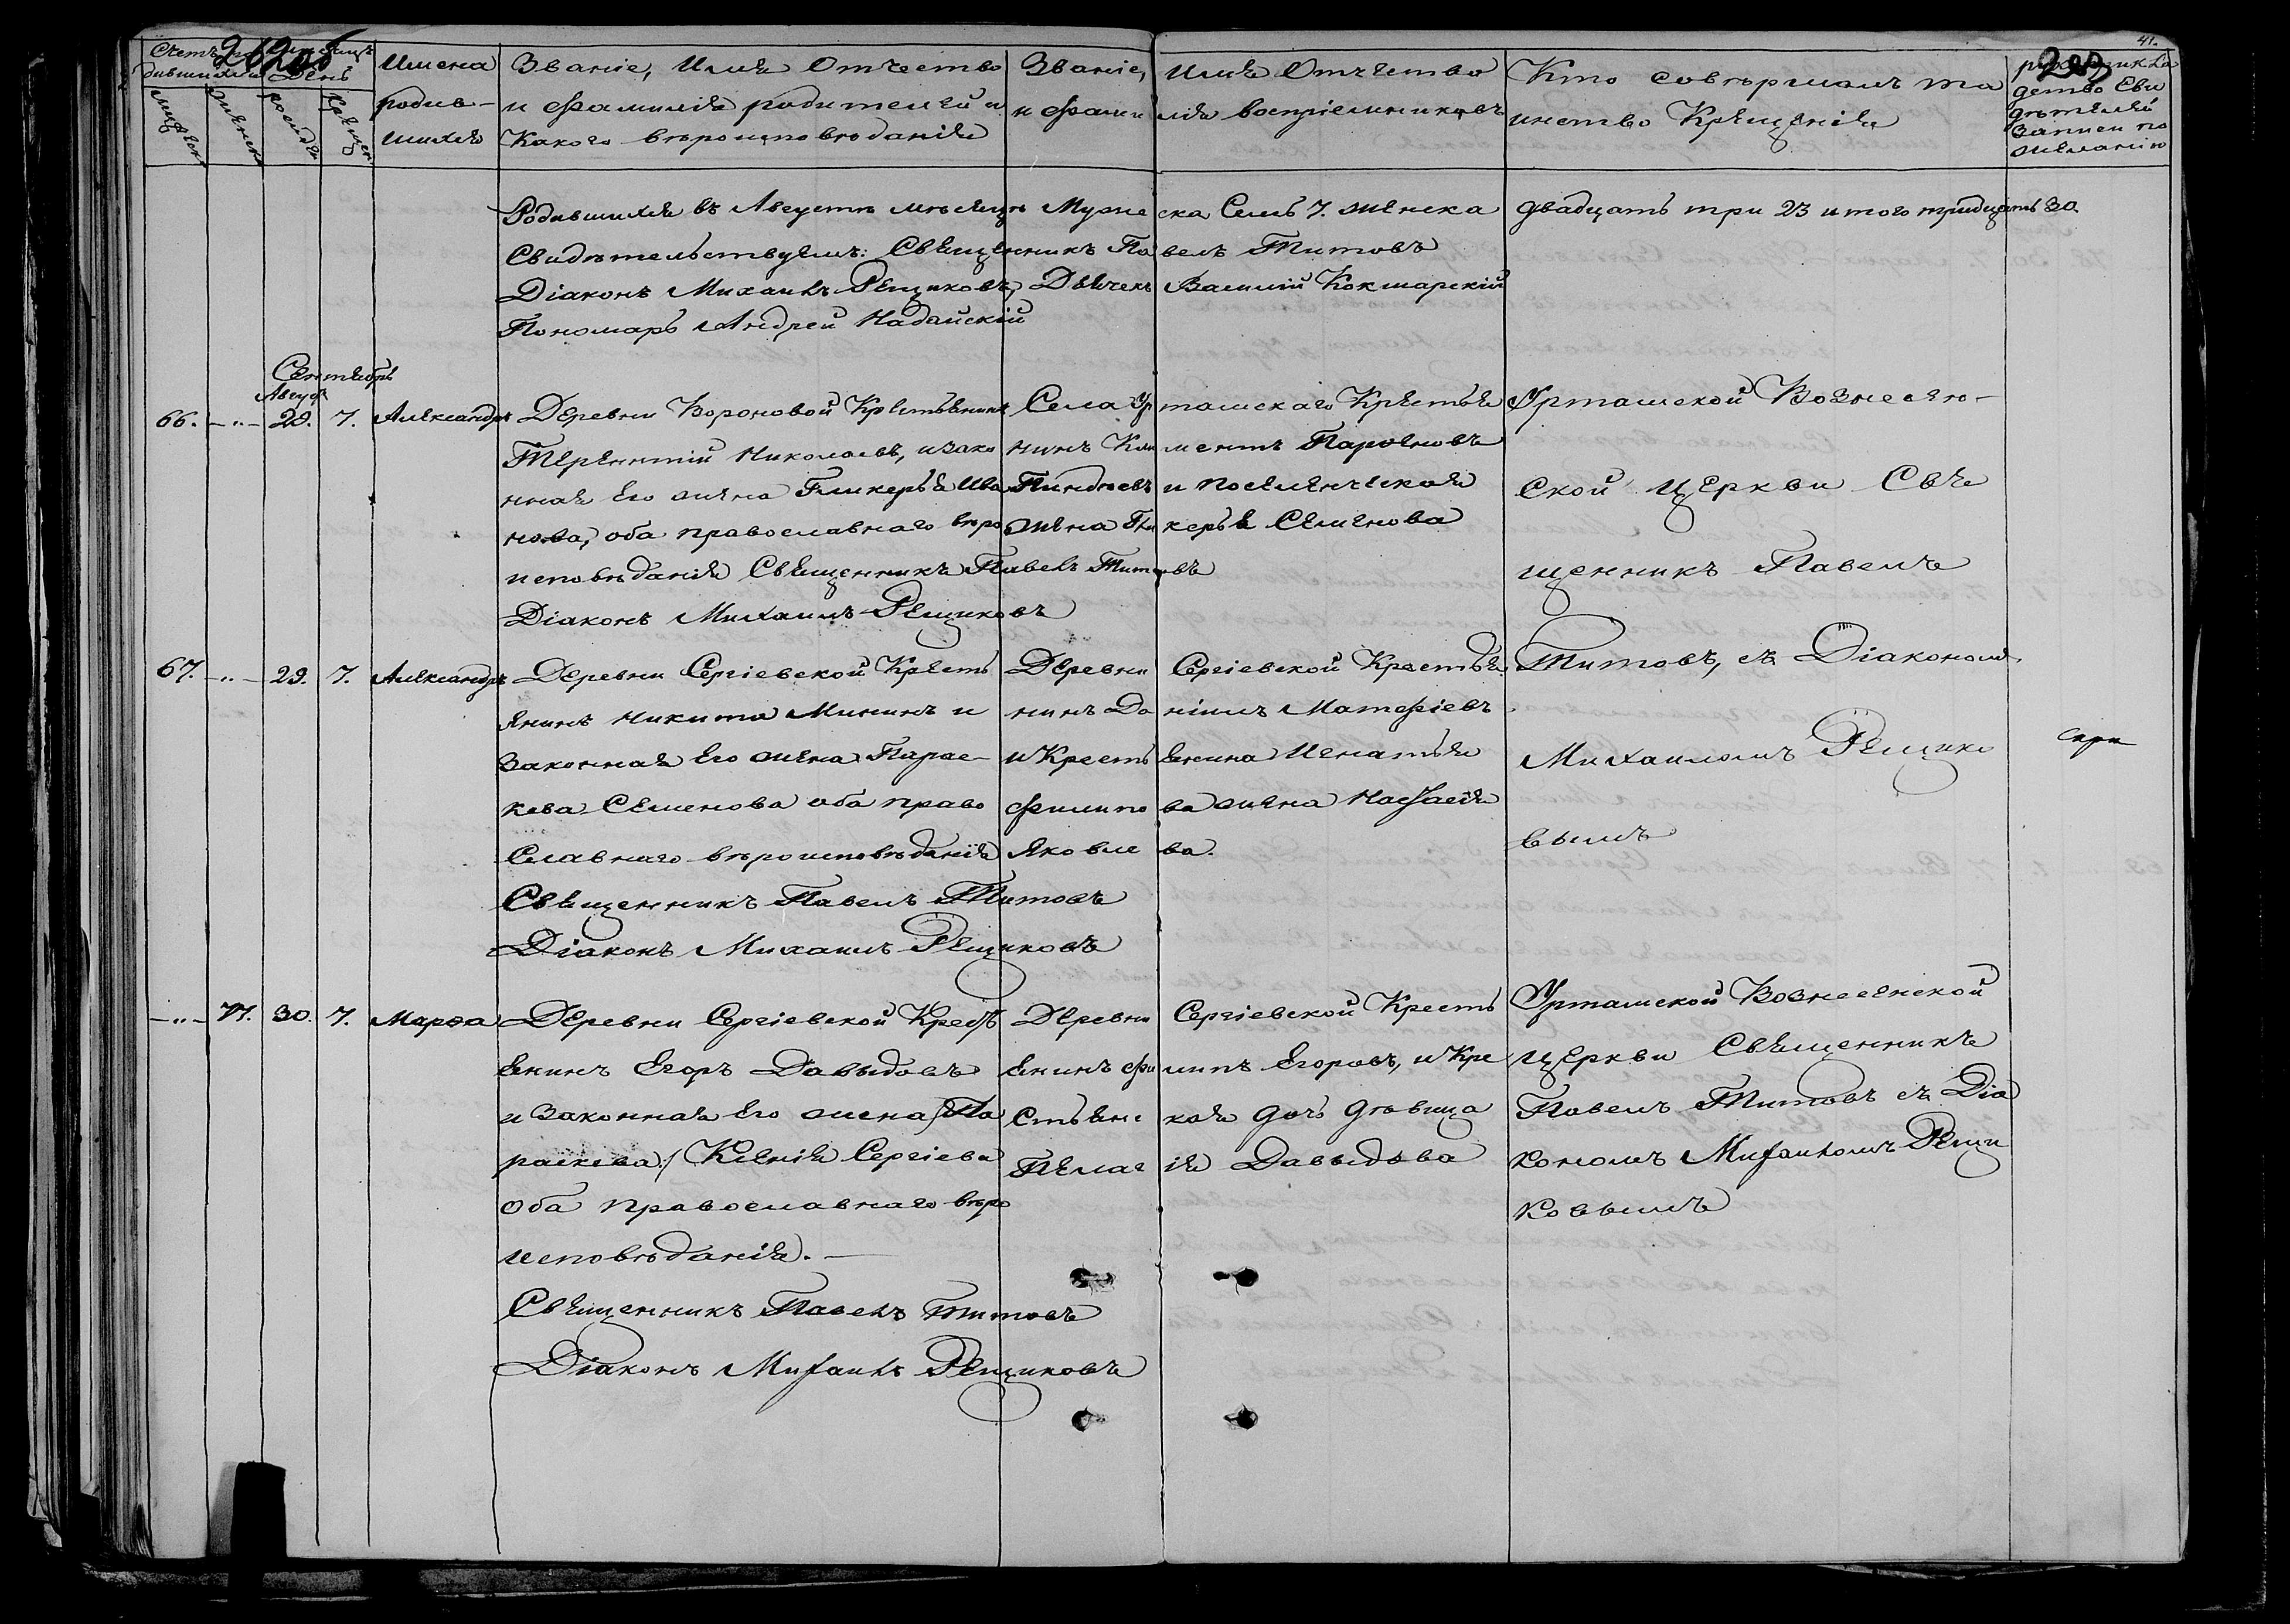 41.
262об
263
Счетъ родившихся
Мѣсяцъ и День
мужеск
женск
рожден
крещен
Имена родив-
шихся
Званіе, Имя Отчество
и Фамилія родителей и
Какого вѣроисповѣданія
Званіе, Имя Отчество
и Фамилія воспріемниковъ
Кто совершалъ та
инство Крещенія
рукоприкла
дство Сви
дѣтелей
записи по
желанію
Родившихся въ Августѣ мѣсяцѣ Мужеска Семь 7. женска двадцать три 23 итого тридцать 30.
Свидѣтельствуемъ: Священникъ Павелъ Титовъ
Діаконъ Михаилъ Рещиковъ, Дьячекъ Василій Кокшарскій
Пономарь Андрей Надайскій
Сентябрь
Август
66. -"- 29. 7. Александръ
Деревни Вороновой Крестьянинъ
Терентий Николаевъ, и зако
нная Его жена Гликерья Ива
нова, оба православнаго вѣро
исповѣданія Священникъ Павелъ Титовъ
Діаконъ Михаилъ Рещиковъ
Села Урташскаго Крестья
нинъ Климентъ Парѳеновъ
Пиндюевъ и поселенческая
жена Гликерья Семенова
Урташской Вознесен-
ской церкви Свя
щенникъ Павелъ
Титовъ, съ Діакономъ
Михаиломъ Рещико
вымъ
67. -"- 29. 7. Александръ
Деревни Сергіевской Кресть
янинъ Никита Мининъ и
Законная Его жена Парас-
кева Семенова оба право
Славнаго вѣроисповѣданія
Священникъ Павелъ Титовъ
Діаконъ Михаилъ Рещиковъ
Деревни Сергіевской Крестья
нинъ Даніилъ Матфіевъ
и Крестьянина Игнатья
Филипова жена Настасія
Яковлева.
скрп
-"- 77. 30. 7. Марѳа
Деревни Сергіевской Кресть
янинъ Егоръ Давыдовъ
и Законная Его жена /:Па
раскева:/ Ксенія Сергіева
Оба Православнаго вѣро
исповѣданія. —
Священникъ Павелъ Титовъ
Діаконъ Михаилъ Рещиковъ
Деревни Сергіевской Кресть
янинъ Филипъ Егоровъ, и Кре
стьянская дочь дѣвица
Пелагія Давыдова
Урташской Вознесенской
церкви Священникъ
Павелъ Титовъ съ Діа
кономъ Михаиломъ Рещи
ковымъ